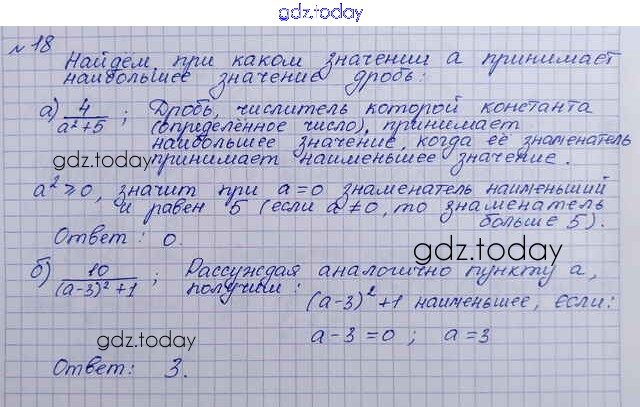 gdz.today
№18
Найдём, при каком значении a принимает
наибольшее значение дробь:
а) 4/(a²+5) ; Дробь, числитель которой константа
(определённое число), принимает
наибольшее значение, когда её знаменатель
gdz.today принимает наименьшее значение.
a²⩾0, значит при a=0 знаменатель наименьший
и равен 5 (если a≠0, то знаменатель
больше 5).
Ответ: 0.
gdz.today
б) 10/((a-3)²+1) ; Рассуждая аналогично пункту а,
получим:
(a-3)²+1 наименьшее, если:
gdz.today
a-3=0; a=3
Ответ: 3.